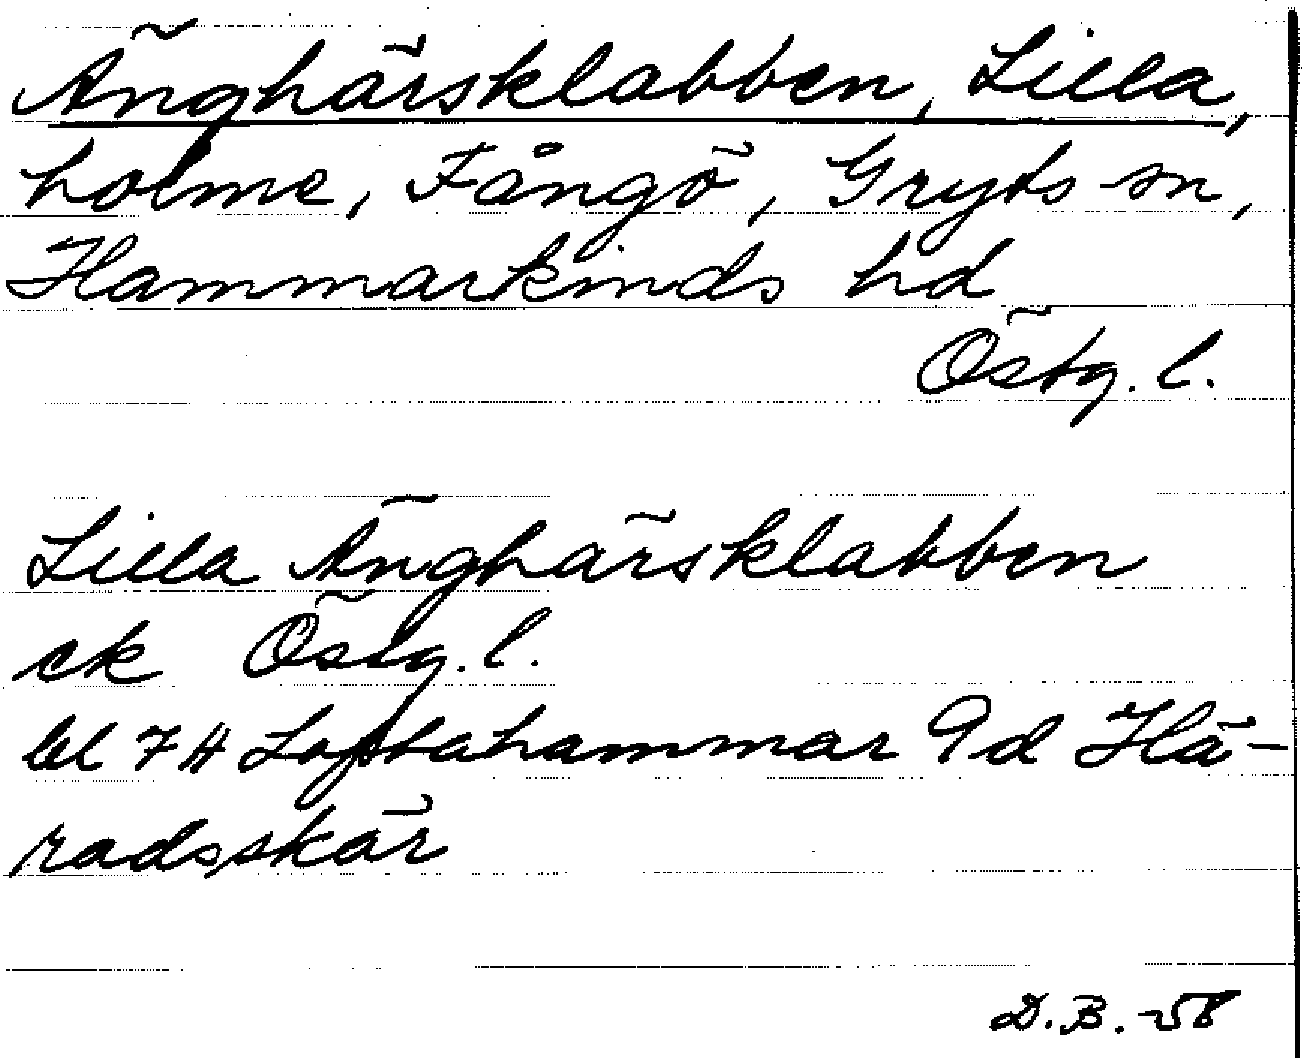 Änghärsklabben, Lilla,
holme, Fångö, Gryts sn,
Hammarkinds hd
Östg. l.
Lilla Änghärsklabben
ek Östg. l.
bl 7 H Loftahammar 9d Hä-
radsskär
D. B. -58